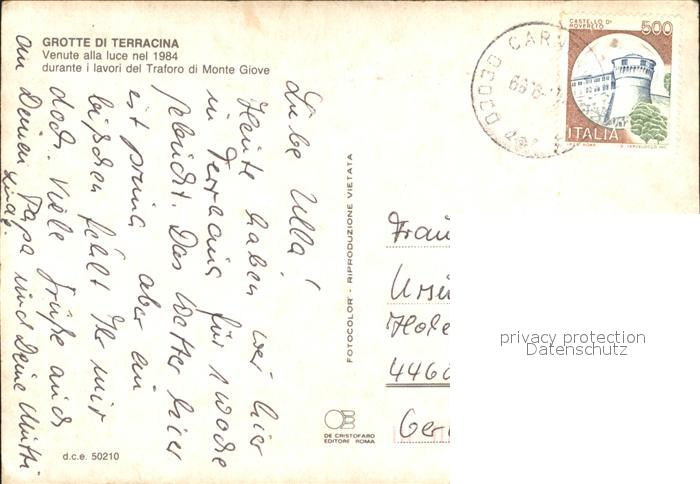 GROTTE DI TERRACINA
Venute alla luce nel 1984
durante i lavori del Traforo di Monte Giove
Liebe Ulla!
Heute haben wir hier
in Terracina für 1 Woche
gebucht. Das Wetter hier
ist prima aber ein
bißchen fehlt Ihr mir
doch. Viele Grüße auch
an Deinen Papa und Deine Mutti.
d.c.e. 50210
FOTOCOLOR - RIPRODUZIONE VIETATA
DE CRISTOFARO
EDITORE ROMA
CASTELLO DI
ROVERETO
500
ITALIA
Frau
privacy protection
Datenschutz